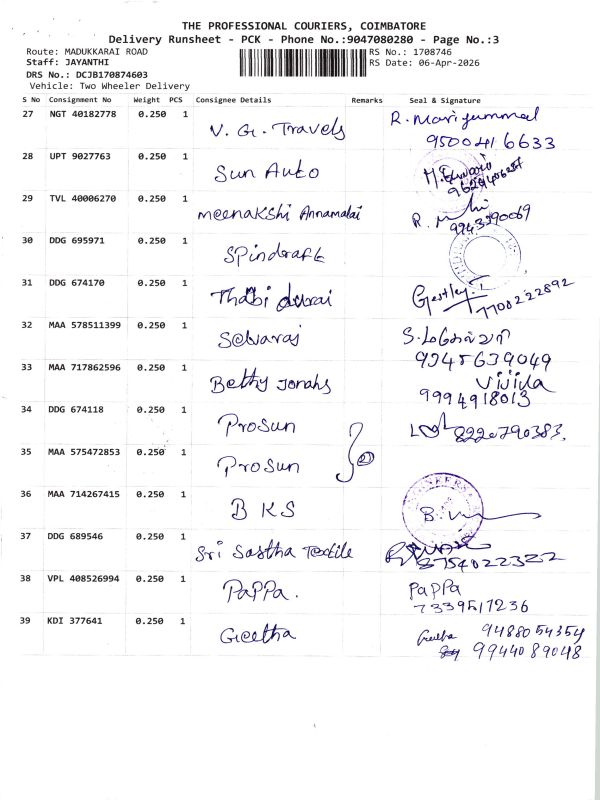 THE PROFESSIONAL COURIERS, COIMBATORE
Delivery Runsheet - PCK - Phone No.:9047080280 - Page No.:3
Route: MADUKKARAI ROAD
RS No.: 1708746
Staff: JAYANTHI
RS Date: 06-Apr-2026
DRS No.: DCJB170874603
Vehicle: Two Wheeler Delivery
S No Consignment No Weight PCS Consignee Details Remarks Seal & Signature
27 NGT 40182778 0.250 1 V. G. Travels R. Mariyammal
9500416633
28 UPT 9027763 0.250 1 Sun Auto
29 TVL 40006270 0.250 1 Meenakshi Annamalai R.
9943390069
30 DDG 695971 0.250 1 Spindraft
31 DDG 674170 0.250 1 Thabi durai
7708222892
32 MAA 578511399 0.250 1 Selvaraj
9345639049
33 MAA 717862596 0.250 1 Bethy Jonahs Vijila
9994918013
34 DDG 674118 0.250 1 Prosun 8220790383.
35 MAA 575472853 0.250 1 Prosun
36 MAA 714267415 0.250 1 B K S
37 DDG 689546 0.250 1 Sri Sastha Textile
8754022322
38 VPL 408526994 0.250 1 Pappa. Pappa
7339517236
39 KDI 377641 0.250 1 Geetha Geetha 9488054354
9944089048